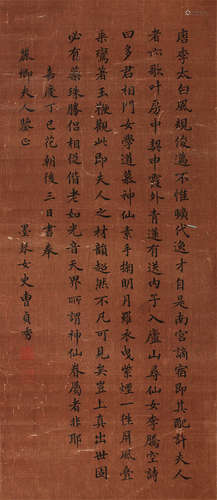 唐李太白風規俊逸不惟曠代逸才自是南宮謫宿即其配許夫人
者亦歌葉房中契中霞外青蓮有送內子入廬山尋仙女李騰空詩
曰多君相門女學道慕神仙素手掬明月羅衣曳紫煙一往屏風疊
乘鸞著玉鞭觀此即夫人之材韻超然不凡可見矣豈上真出世固
必有蘂珠勝侶相從偕老如光音天界所謂神仙眷屬者非耶
嘉慶丁巳花朝後三日書奉
蘂卿夫人鑒正
墨琴女史曹貞秀